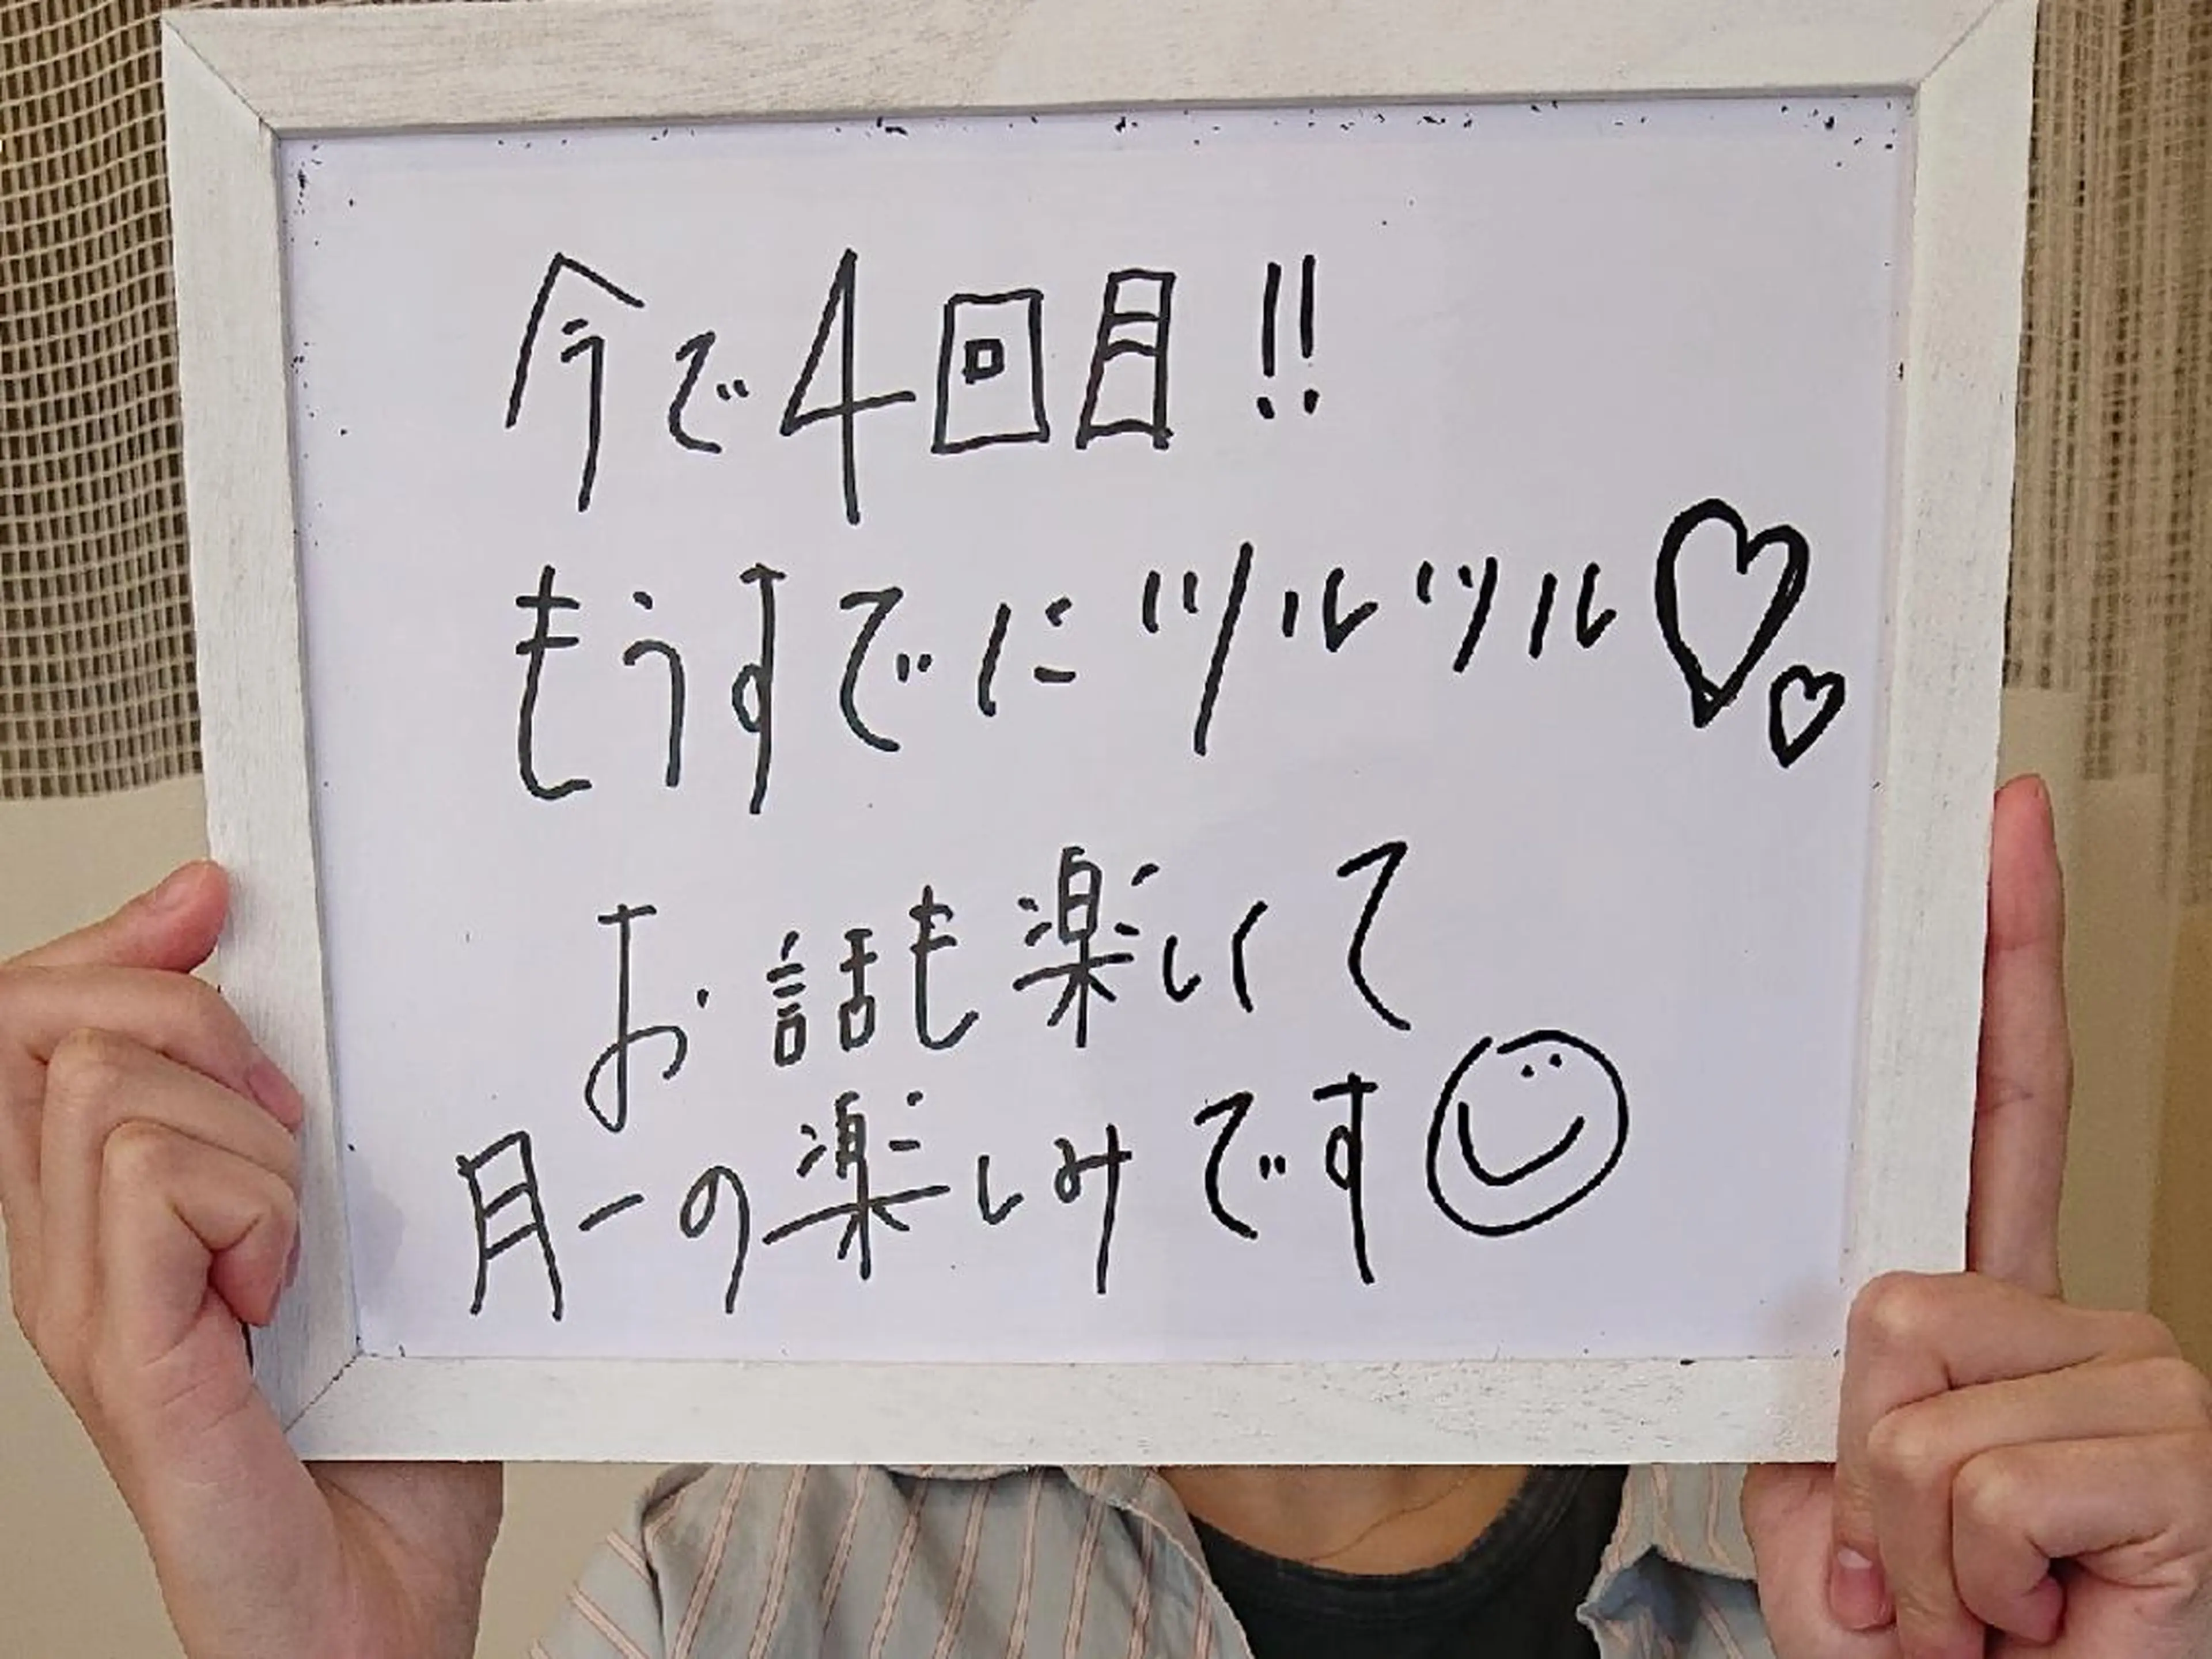 今で4回目!!
もうすでにツルツル♡♡
お話も楽しくて
月一の楽しみです☺